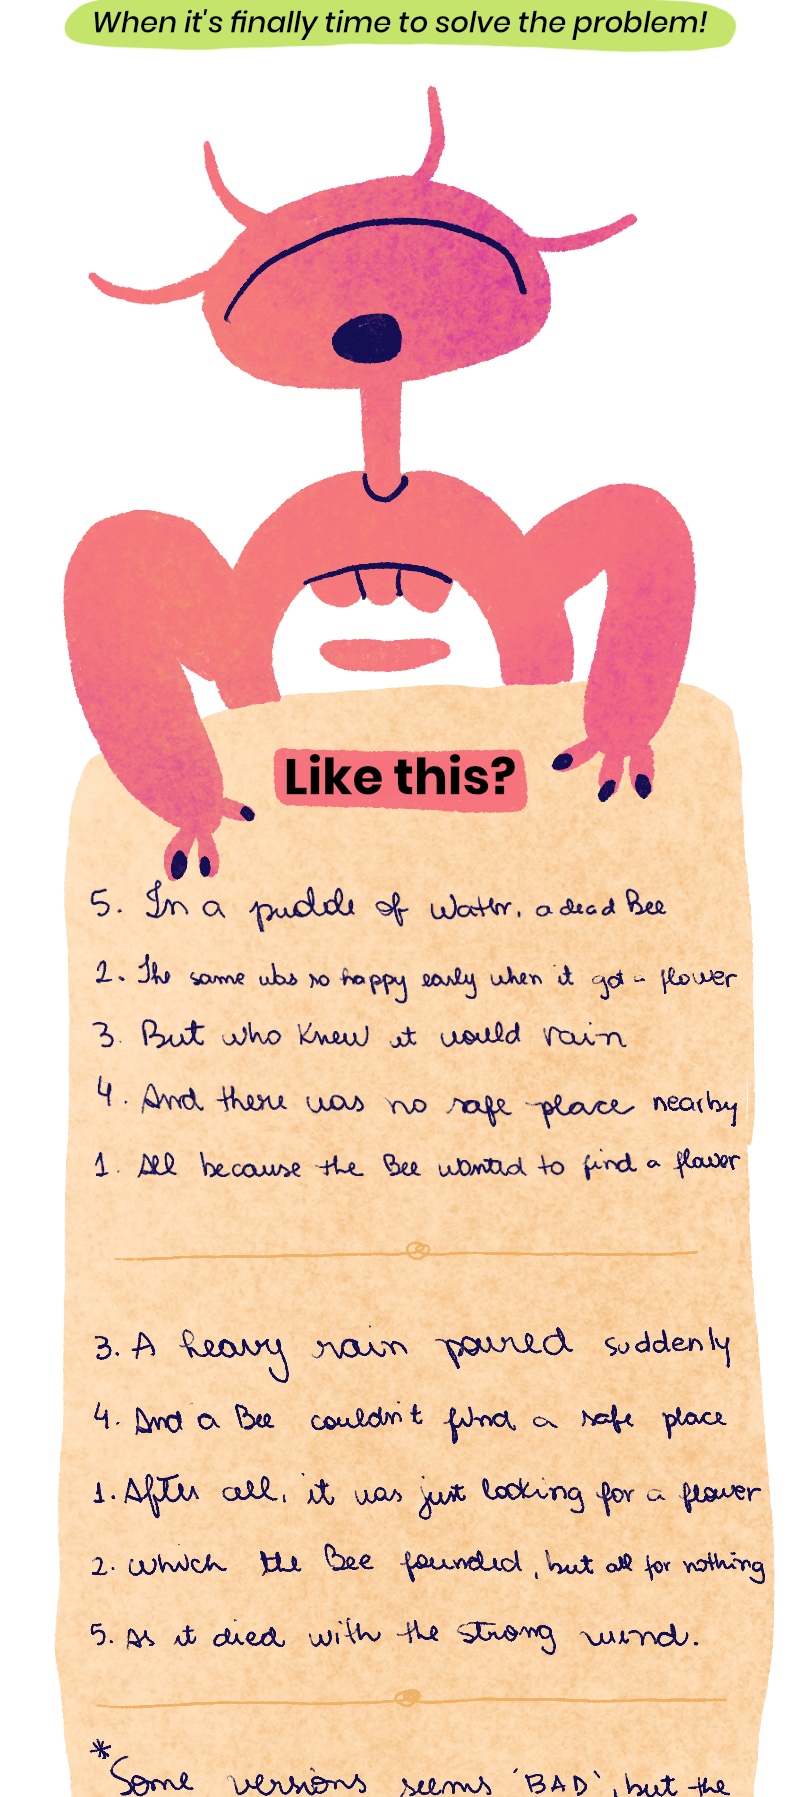 When it's finally time to solve the problem!
Like this?
5. In a puddle of water, a dead Bee
2. The same was so happy early when it got a flower
3. But who knew it would rain
4. And there was no safe place nearby
1. All because the Bee wanted to find a flower
3. A heavy rain poured suddenly
4. And a Bee couldn't find a safe place
1. After all, it was just looking for a flower
2. which the Bee founded, but all for nothing
5. As it died with the strong wind.
*Some versions seems 'BAD', but the